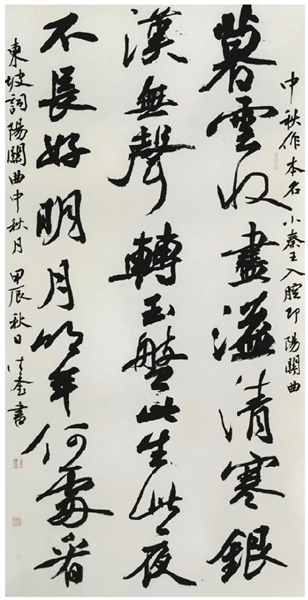 中秋作本名小秦王入腔即陽關曲
暮雲收盡溢清寒銀
漢無聲轉玉盤此生此夜
不長好明月明年何處看
東坡詞陽關曲中秋月甲辰秋日
書